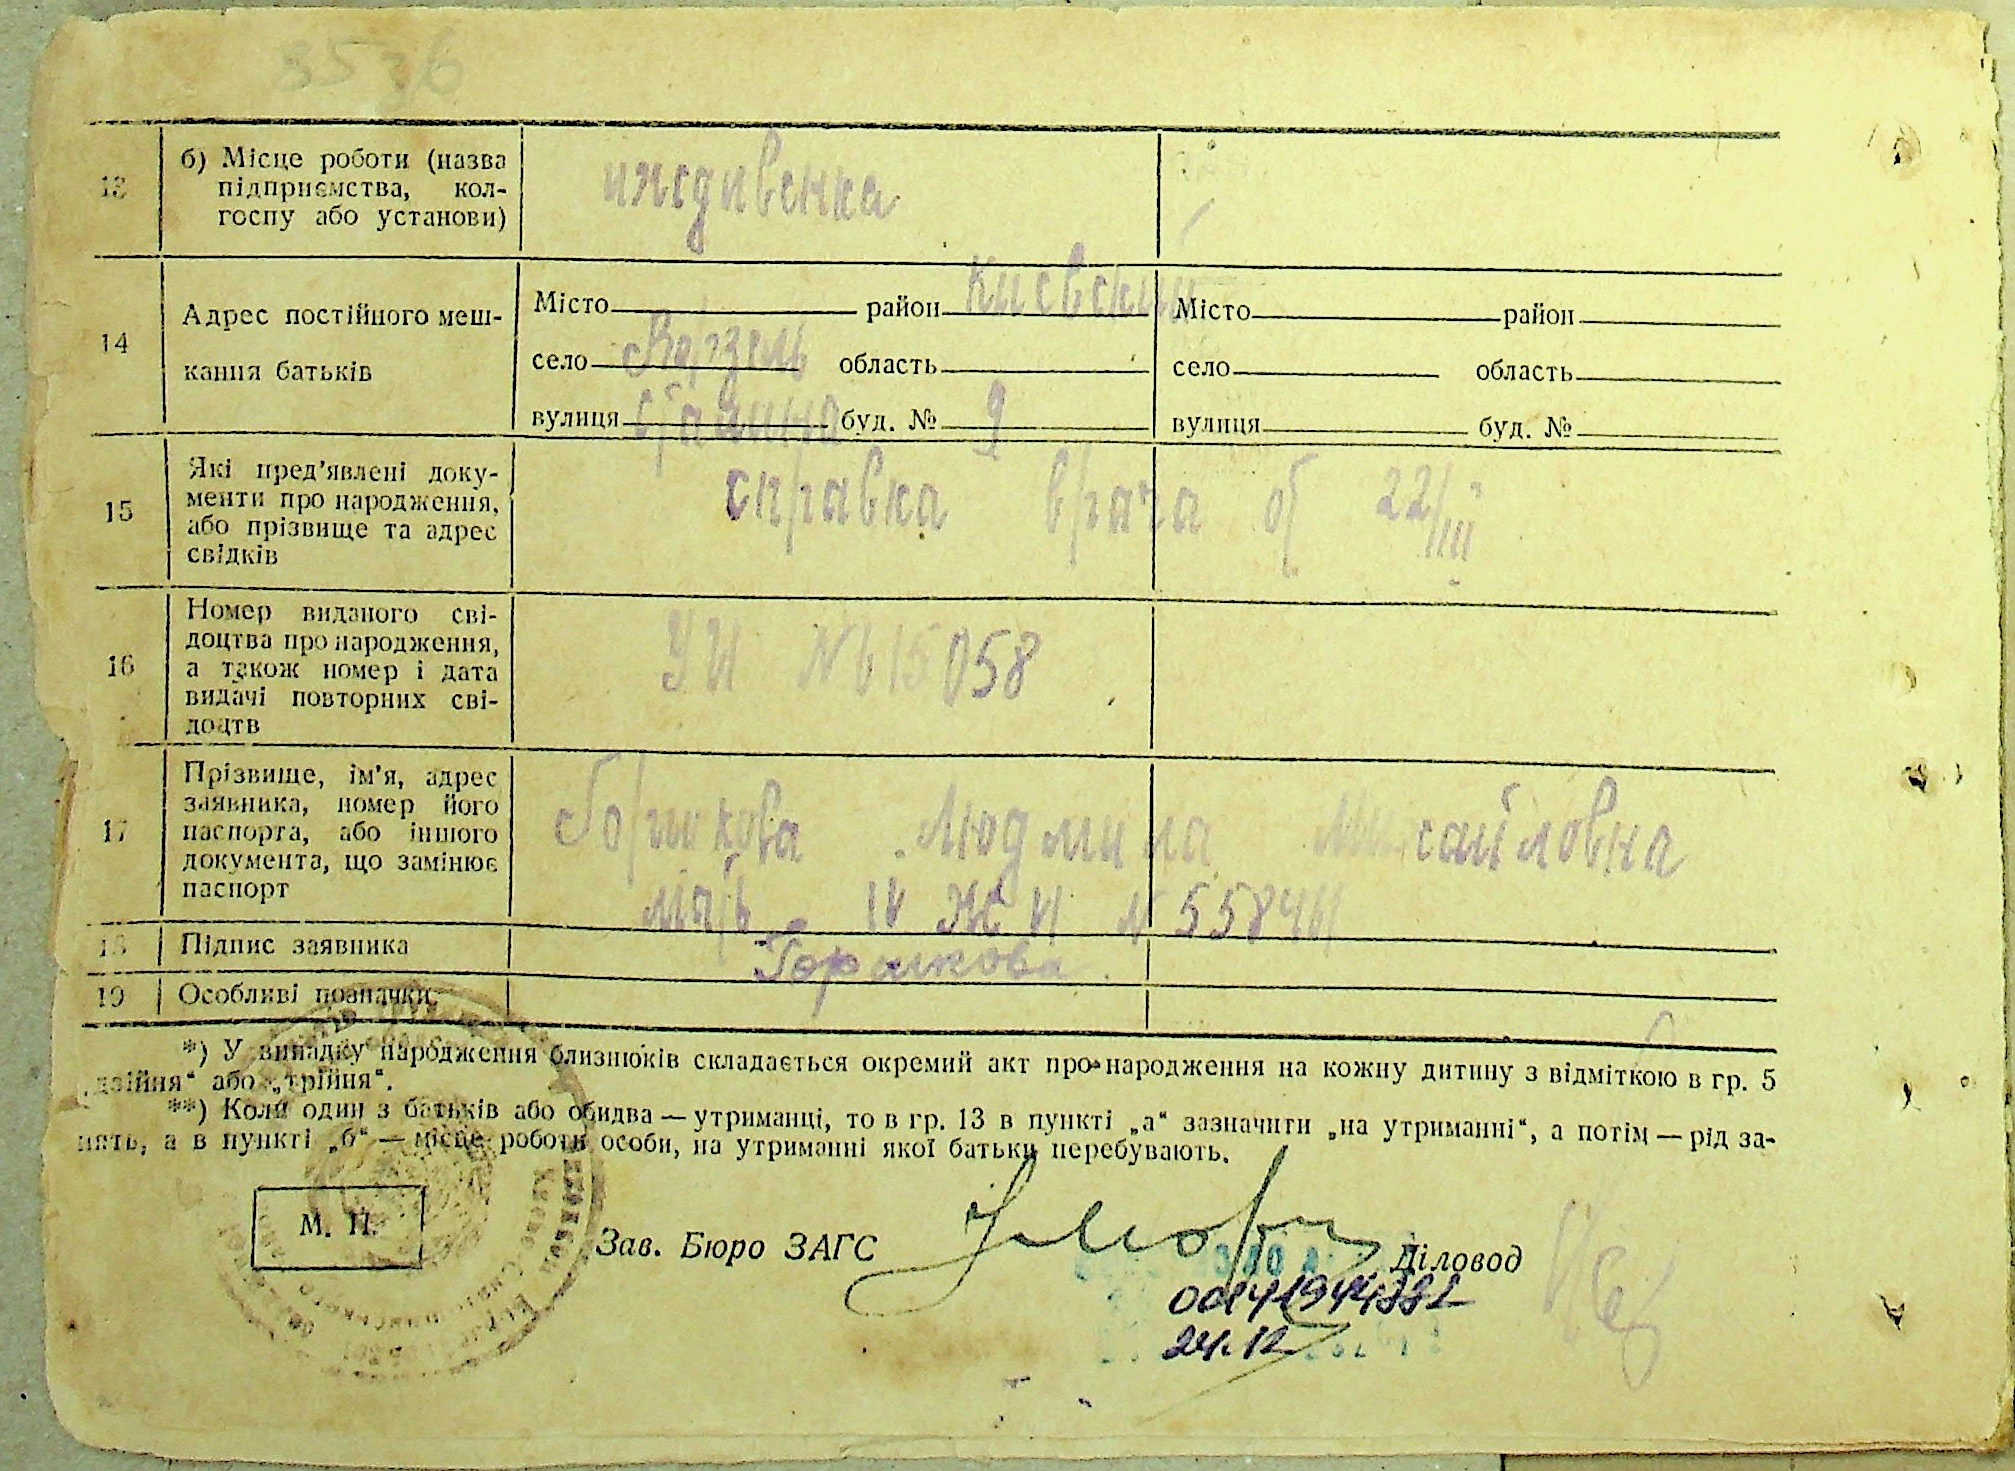 13
б) Місце роботи (назва
підприємства, кол-
госпу або установи)
иждивенка
14
Адрес постійного меш-
кання батьків
Місто район Киевский
село Ворзель область
вулиця буд. № 9
Місто район
село область
вулиця буд. №
15
Які пред’явлені доку-
менти про народження,
або прізвище та адрес
свідків
справка врача от 22/III
16
Номер виданого сві-
доцтва про народження,
а також номер і дата
видачі повторних сві-
доцтв
УИ № 615058
17
Прізвище, ім’я, адрес
заявника, номер його
паспорта, або іншого
документа, що замінює
паспорт
Горшкова Людмила Михайловна
мать IV ЖИ №
18
Підпис заявника
Горшкова
19
Особливі позначки
*) У випадку народження близнюків складається окремий акт про народження на кожну дитину з відміткою в гр. 5
„двійня“ або „трійня“.
**) Коли один з батьків або обидва — утриманці, то в гр. 13 в пункті „а“ зазначити „на утриманні“, а потім — рід за-
нять, а в пункті „б“ — місце роботи особи, на утриманні якої батьки перебувають.
М. П.
Зав. Бюро ЗАГС
Діловод
24.12